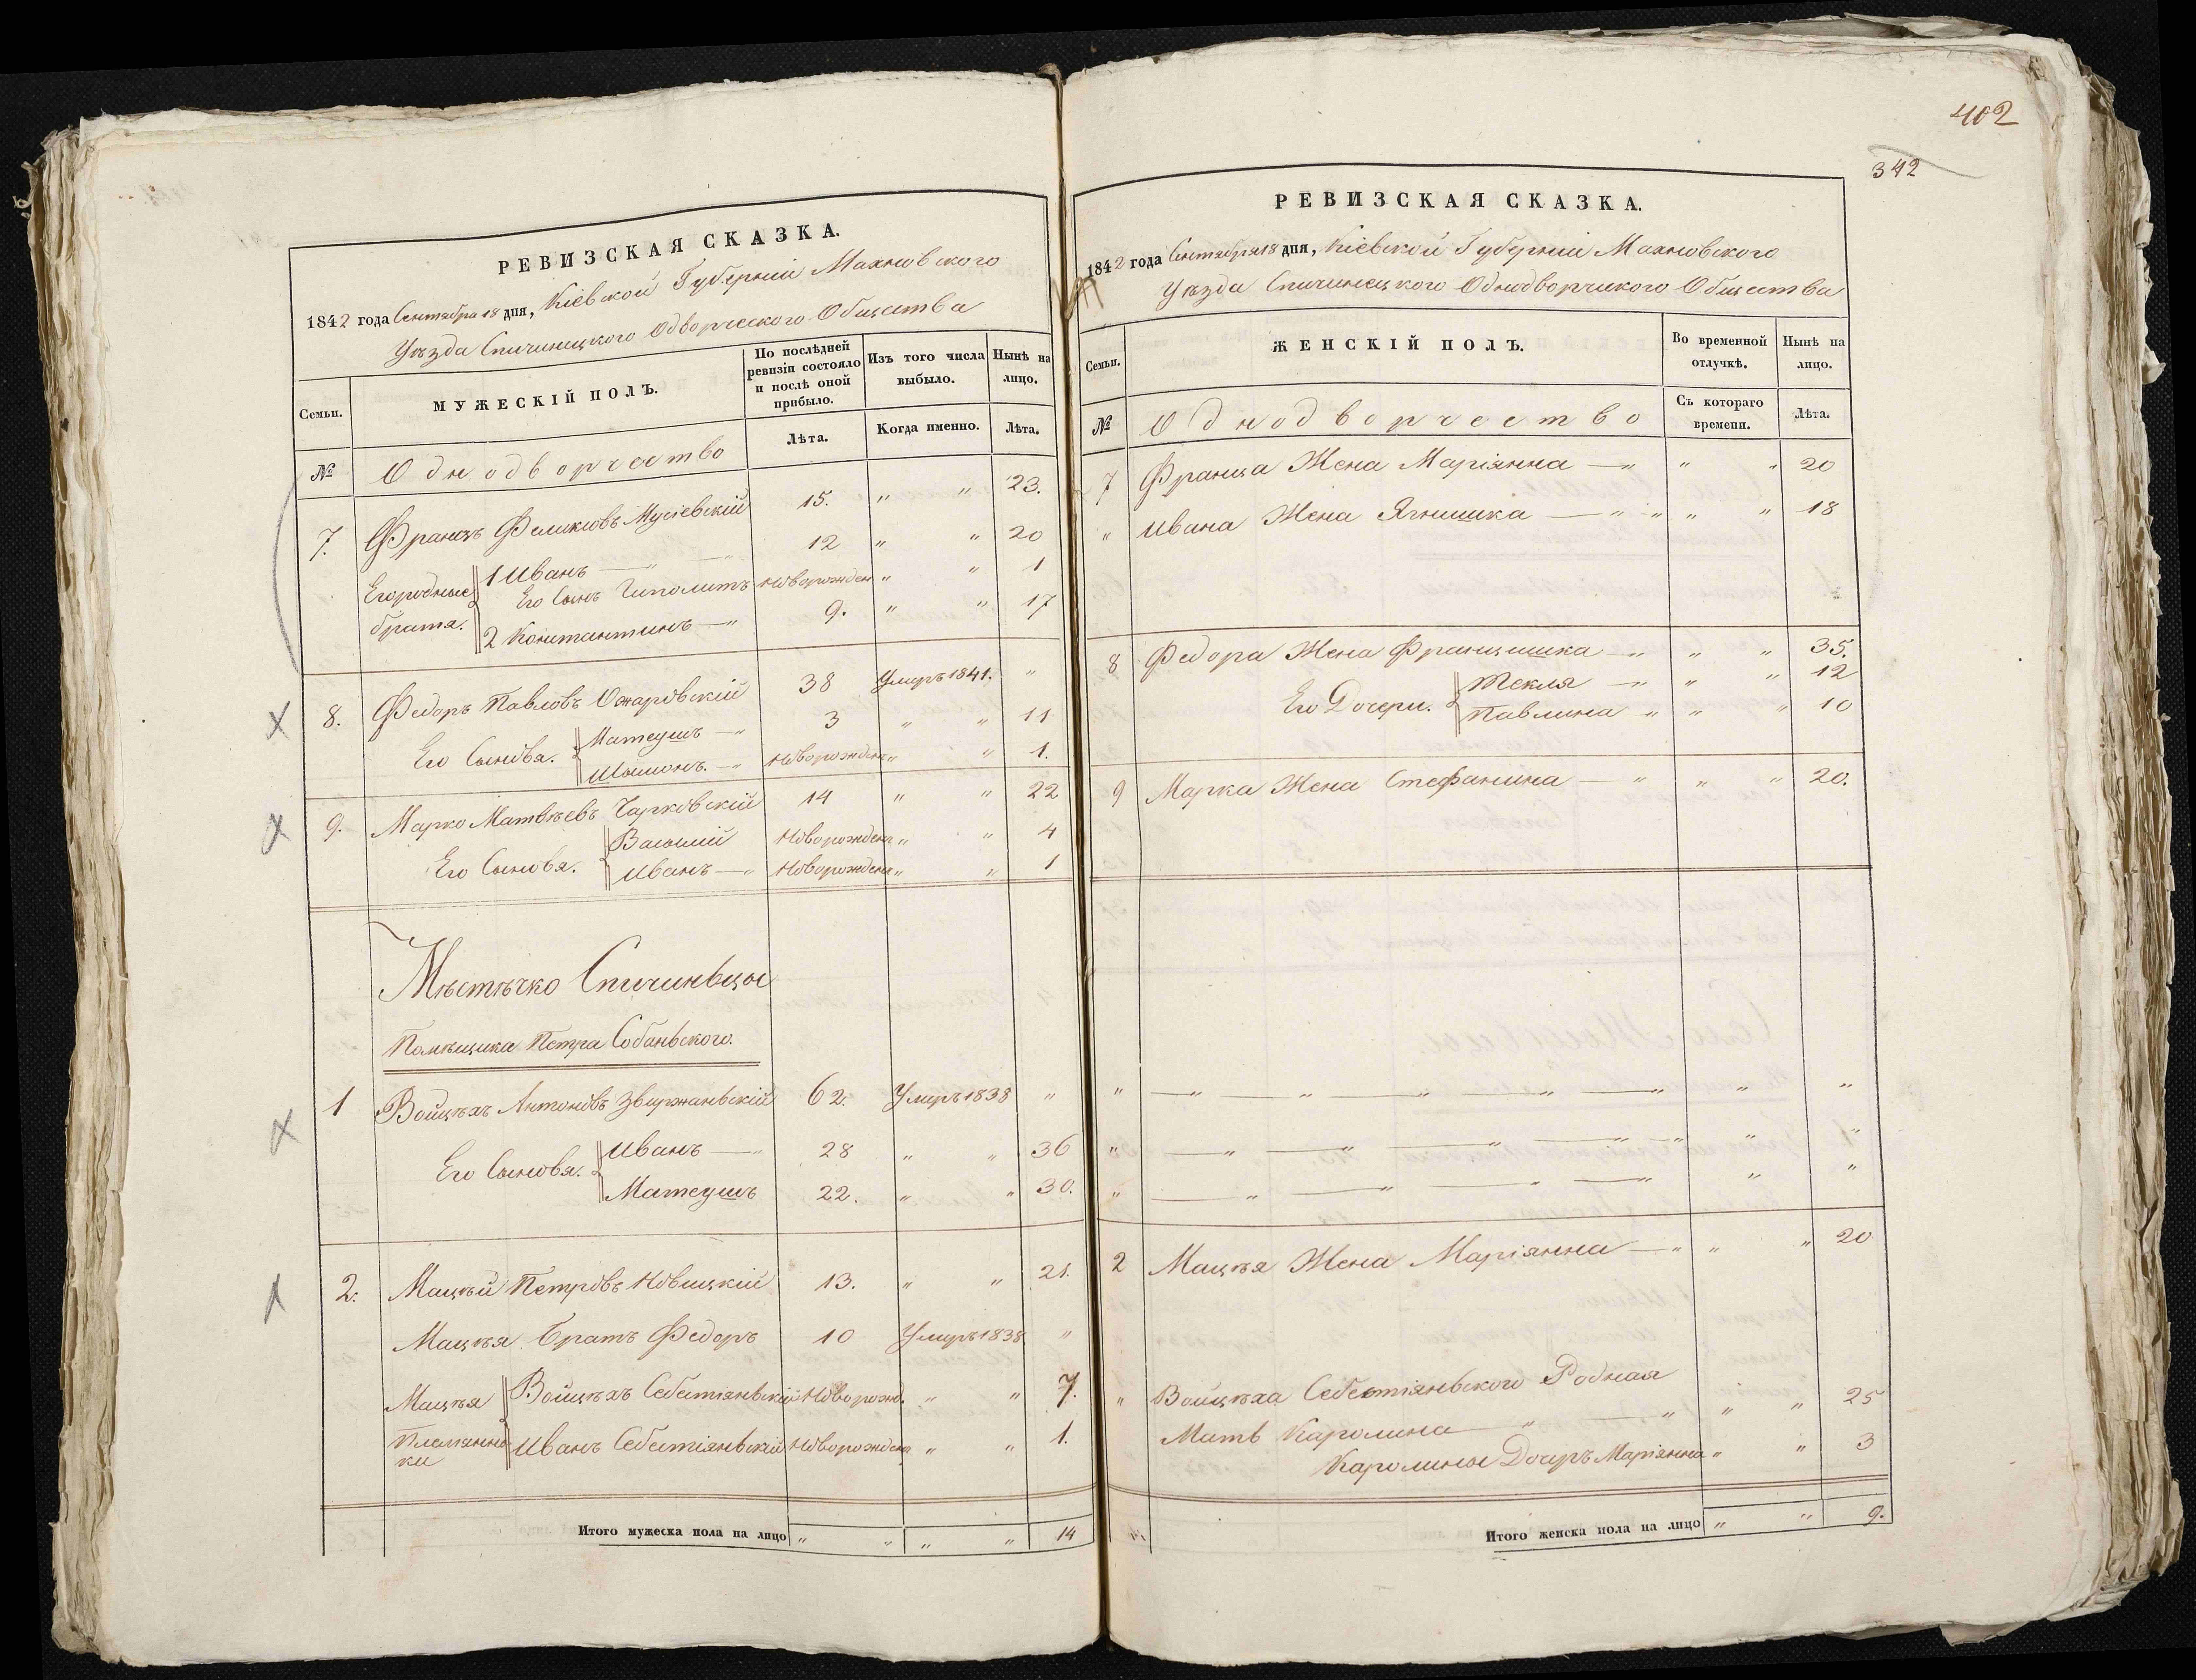 РЕВИЗСКАЯ СКАЗКА.
1842 года Сентября 18 дня, Кіевской Губерніи Махновского
Уѣзда Спичиницкого Одворческого Общества
Семьи.
МУЖЕСКІЙ ПОЛЪ.
По послѣдней ревизіи состояло и послѣ оной прибыло.
Изъ того числа выбыло.
Нынѣ на лицо.
№
Однодворчество
Лѣта.
Когда именно.
Лѣта.
7. Францъ Феликсовъ Мусіевскій 15. " " 23.
Его родные брата. 1 Иванъ — " 12 " " 20
Его Сынъ Гиполитъ Новорожден " " 1
2 Константинъ — " 9. " " 17
8. Федоръ Павловъ Ожаровскій 38 Умеръ 1841. "
Его Сыновя. Матеушъ — " 3 " " 11
Шымонъ. — " Новорожденъ " " 1.
9. Марко Матвѣевъ Чарковскій 14 " " 22
Его Сыновя. Василій Новорожденъ " " 4
Иванъ — " Новорожденъ " " 1
Мѣстѣчко Спичинѣцы
Помѣщика Петра Собаньского.
1 Войцѣхъ Антоновъ Звиржаньскій 62. Умеръ 1838 "
Его Сыновя. Иванъ — " 28 " " 36
Матеушъ 22. " " 30.
2. Мацѣй Петровъ Новицкій 13. " " 21.
Мацѣя Братъ Федоръ 10 Умеръ 1838 "
Мацѣя Войцѣхъ Себестіяньскій Новорожд. " " 7.
Племянники Иванъ Себестіяньскій Новорожденъ " " 1.
Итого мужеска пола на лицо " " " " 14
402
342
РЕВИЗСКАЯ СКАЗКА.
1842 года Сентября 18 дня, Кіевской Губерніи Махновского
Уѣзда Спичинецкого Однодворчикого Общества
Семьи.
ЖЕНСКІЙ ПОЛЪ.
Во временной отлучкѣ.
Нынѣ на лицо.
№
Однодворчество
Съ котораго времени.
Лѣта.
7 Франца Жена Маріянна — " " " 20
" Ивана Жена Ягнишка — " " " " 18
8 Федора Жена Францишка — " " " 35.
Его Дочери. Текля — " " " 12
Павлина — " " " 10
9 Марка Жена Стефанина — " " " 20.
2 Мацѣя Жена Маріянна — " " " 20
" Войцѣха Себестіяньского Родная
Мать Каролина — " — " " " 25
Каролины Дочеръ Маріянна " " 3
Итого женска пола на лицо " " 9.